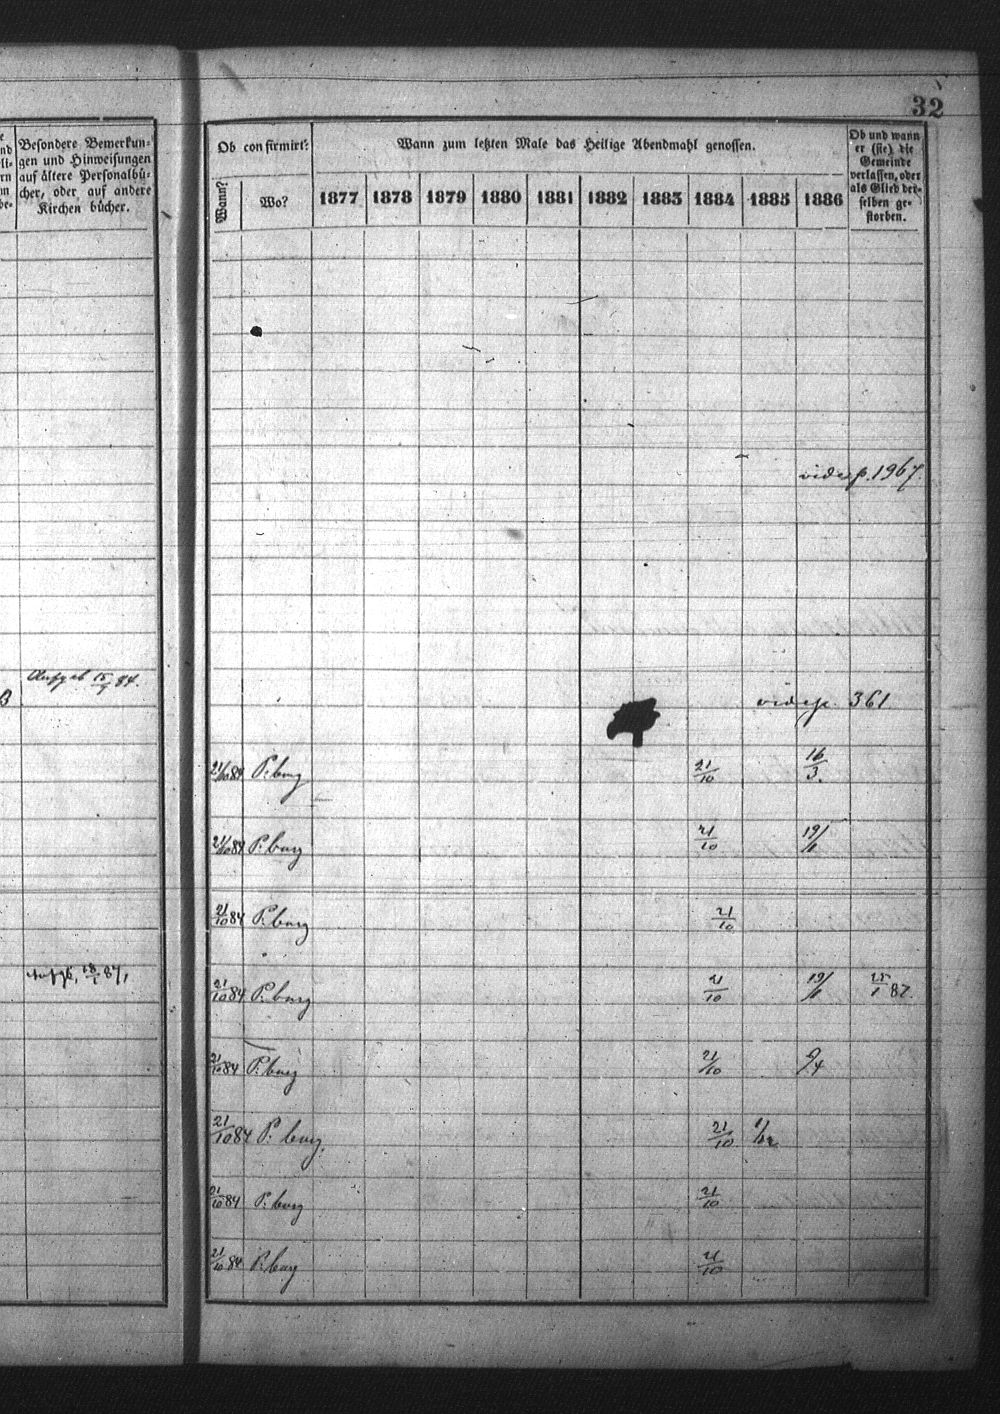 32
Besondere Bemerkun-
gen und Hinweisungen
auf ältere Personalbü-
cher, oder auf andere
Kirchen bücher.
Ob confirmirt?
Wann?
Wo?
Wann zum letzten Male das Heilige Abendmahl genossen.
1877 1878 1879 1880 1881 1882 1883 1884 1885 1886
Ob und wann
er (sie) die
Gemeinde
verlassen, oder
als Glied der-
selben ge-
storben.
vide p. 1967.
15/7 84.
vide p. 361
21/10 84 P.burg 21/10 16/3.
21/10 84 P.burg 21/10 19/1
21/10 84 P.burg 21/10
18/1 87,
21/10 84 P.burg 21/10 19/1 25/1 87.
21/10 84 P.burg 21/10 9/4
21/10 84 P.burg. 21/10 1/12
21/10 84 P.burg 21/10
21/10 84 P.burg 21/10